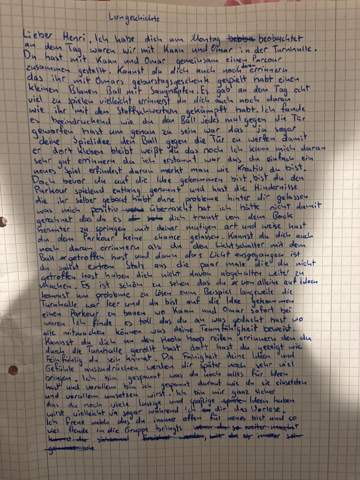 Lerngeschichte
Lieber Henri, Ich habe dich am Montag beobachtet
an dem Tag waren wir mit Kaan und Omar in der Turnhalle.
Du hast mit Kaan und Omar gemeinsam einen Parcour
zusammen gestellt. Kannst du dich auch noch daran errinnern
das ihr mit Omars geburstagsgeschenk gespielt habt einen
kleinen Blauen Ball mit Saugnäpfen. Es gab an dem Tag echt
viel zu spielen vielleicht errinerst du dich auch noch daran
wie ihr mit den Stoffschwertern gekämpft habt. Ich fande
es beeindruckend als du den Ball jedes mal gegen die Tür
geworfen hast um genau zu sein war das ja sogar
deine Spielidee den Ball gegen die Tür zu werfen damit
er dort kleben bleibt weißt du das noch Ich kann mich daran
sehr gut errinern da ich erstaunt war das du einfach ein
neues Spiel erfindest daran merkt man wie Kreativ du bist.
Doch bevor du auf die Idee gekommen bist, bist du den
Parkour spielend entlang gerannt und hast die Hindernisse
die ihr selber gebaut habt ohne probleme hinter dir gelassen
was mich positiv überrascht hat ich hätte nicht damit
gerechnet das du es dich traust von dem Bock
herunter zu springen mit deiner mutigen art und weise hast
du dem Parkour keine chance gelassen. Kannst du dich auch
noch daran errinern als du den Lichtschalter mit dem
Ball getroffen hast und dann das Licht ausgegangen ist
du warst extrem Stolz aus die paar male die du nicht
getroffen hast haben dich nicht davon abgehalten weiter zu
machen. Es ist schön zu sehen das du von alleine auf Ideen
kommst um probleme zu lösen zum Beispiel langweile die
Turnhalle war leer und du bist auf die Idee gekommen
einen Parkour zu bauen wo Kaan und Omar sofort bei
waren Ich finde es toll das du an was gedacht hast wo
alle mitmachen können was deine Teamfähigkeit beweist.
Kannst du dich an den Hoola Hoop reifen errinnern den du
durch die Turnhalle gerollt hast dort hast du gezeigt wie
Feinfühlig du sein kannst. Die Fähigkeit deine Ideen und
Gefühle auszudrücken werden dir später noch sehr viel
bringen. Ich bin gespannt was du noch alles für Ideen
hast und vorallem bin ich gespannt darauf wie du sie einsetzen
und vorallem umsetzen wirst. Ich bin mir ganz sicher
das du noch viele lustige und spaßige Ideen haben
wirst vielleicht ja sogar während ich dir das Vorlese.
Ich freue mich das du immer offen für neues bist und so
viel Freude in die Gruppe bringst